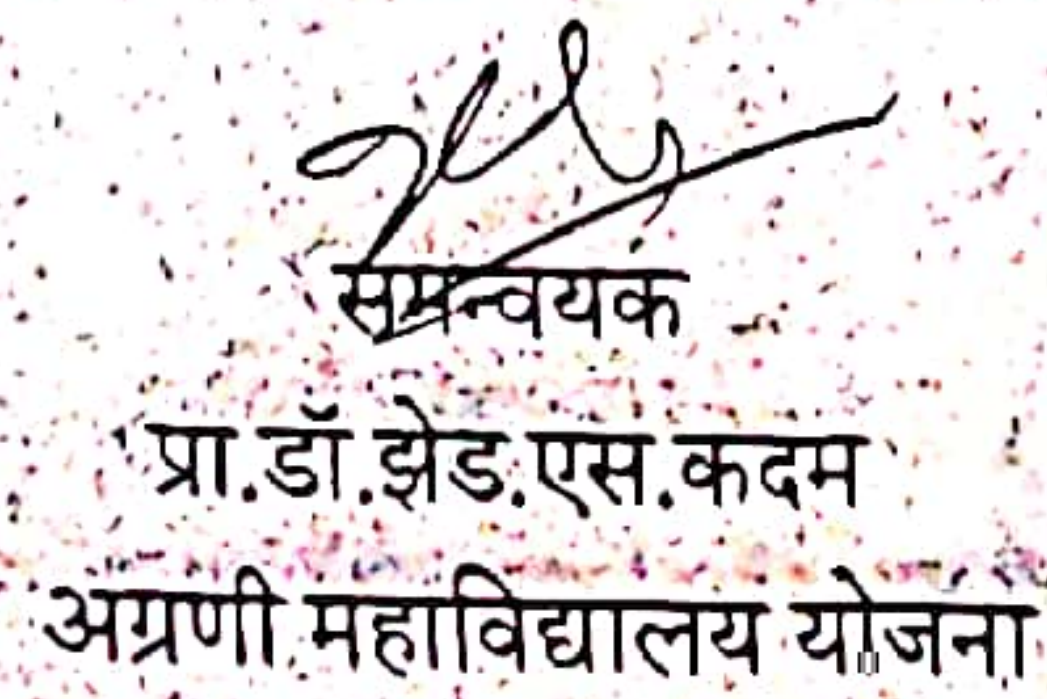 समन्वयक
प्रा.डॉ.झेड.एस.कदम
अग्रणी महाविद्यालय योजना